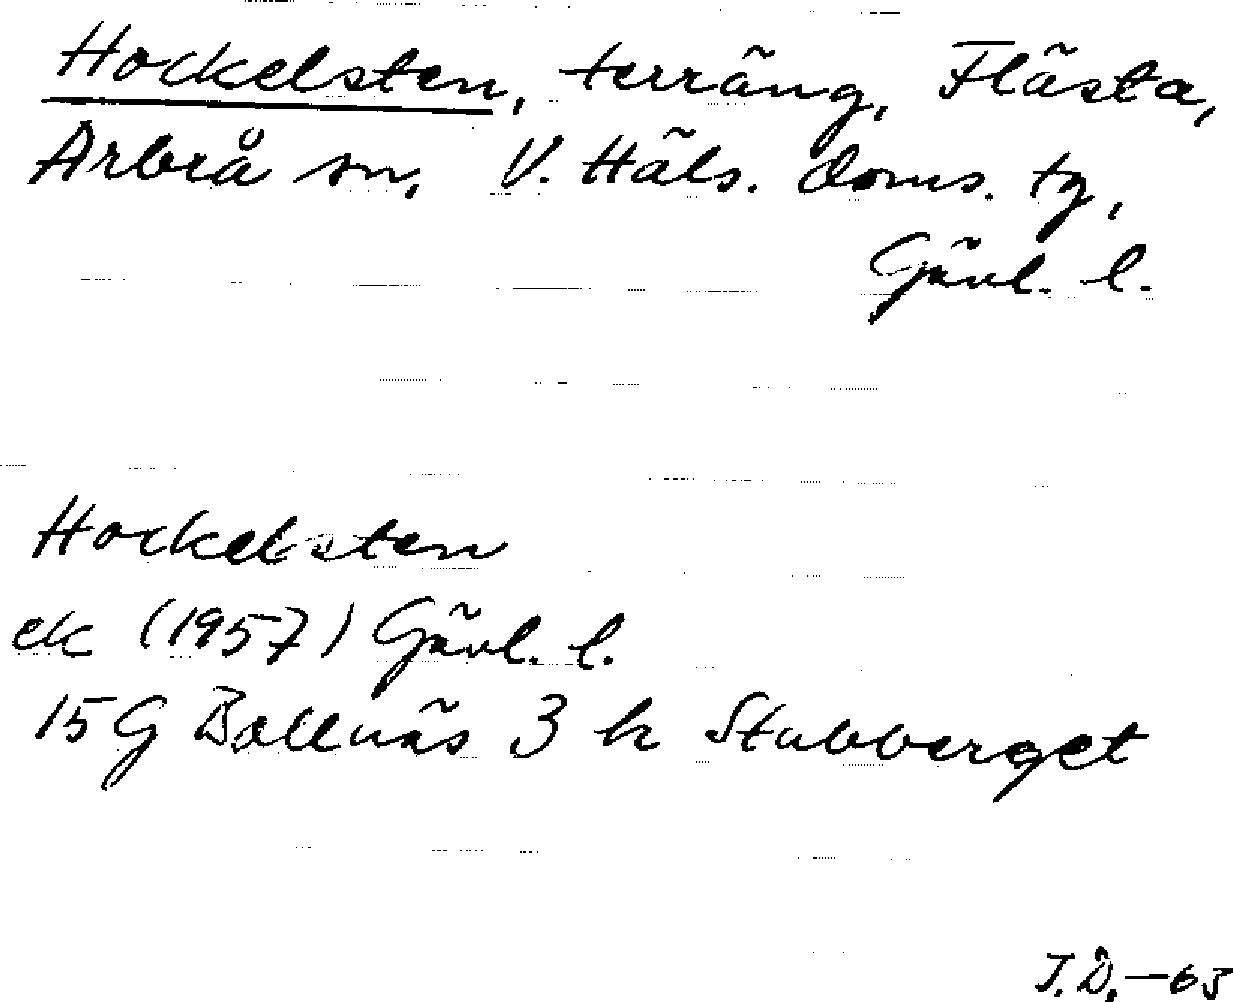 Hockelsten, terräng, Flästa,
Arbrå sn, V. Häls. doms. tg,
Gävl. l.
Hockelsten
ek (1957) Gävl. l.
15 G Bollnäs 3 h Stubberget
J.Ö.-65